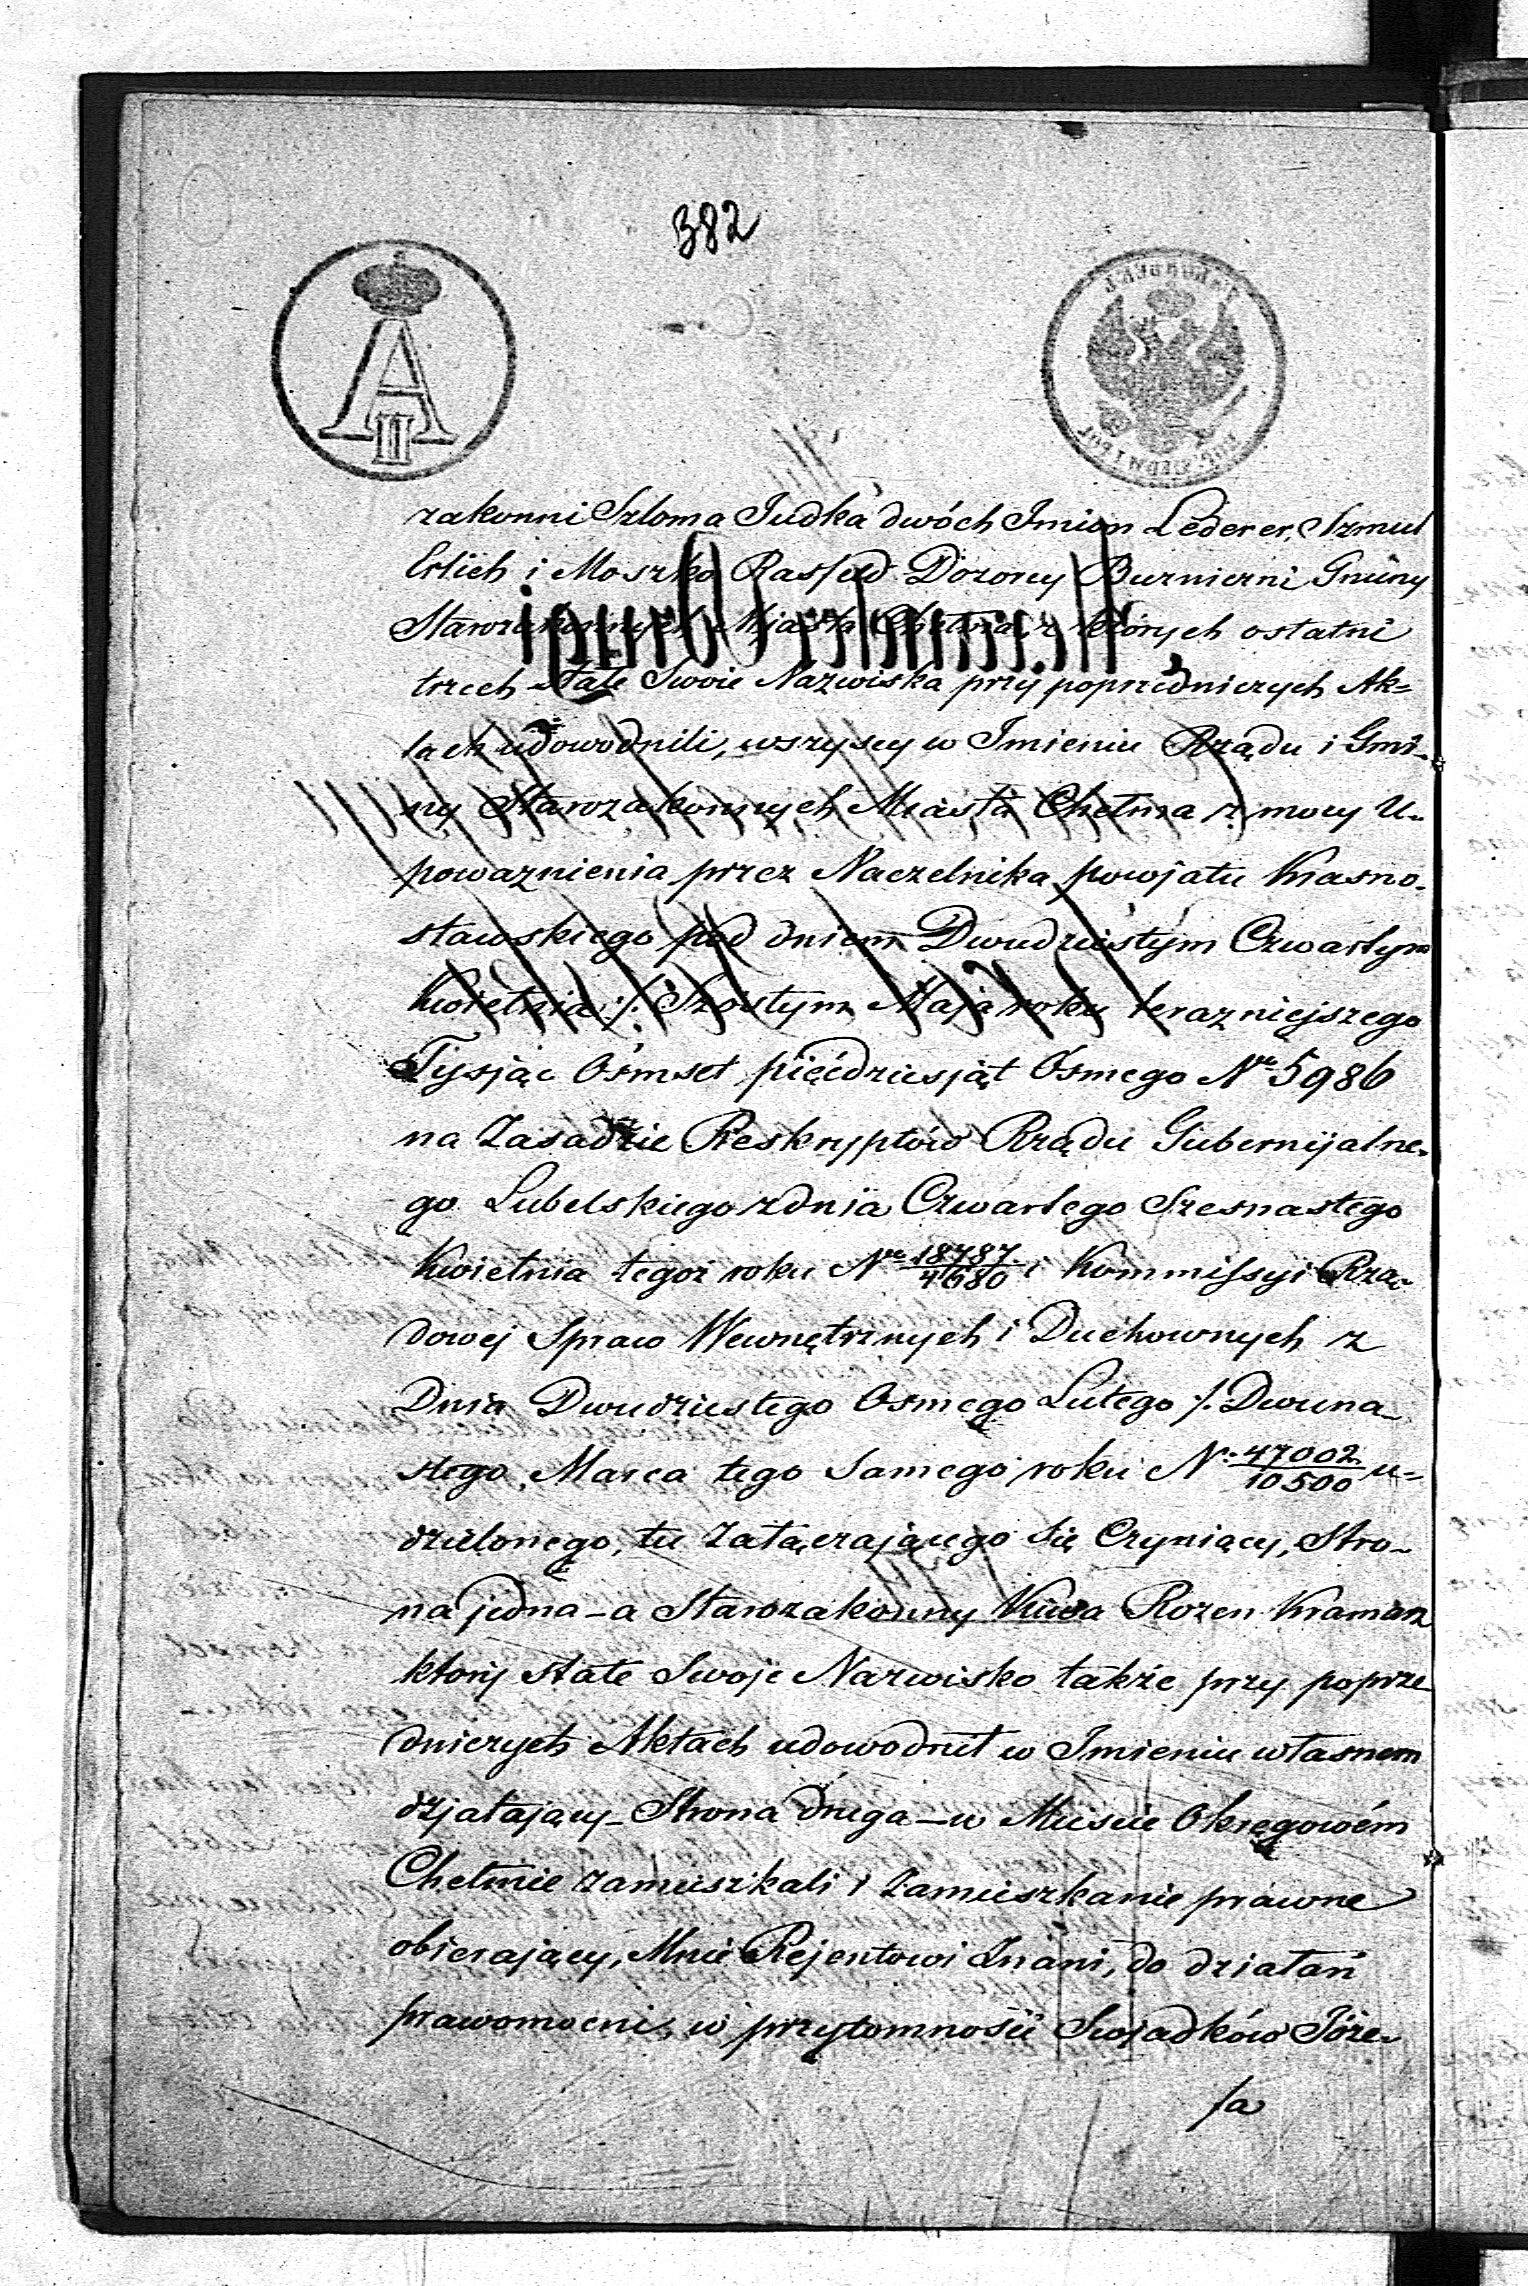 382
A
II
zakonni Szloma Judka dwóch Imion Lederer, Szmul
Erlich i Moszko Dozorcy Bużniczni Gminy
Starozakonnych Miasta Chełma, z których ostatni
trzech stałe Swoie Nazwiska przy poprzedniczych Ak=
tach udowodnili, wszyscy w Imieniu Rządu i Gmi-
ny Starozakonnych Miasta Chełma z mocy U-
poważnienia przez Naczelnika powjatu Krasno-
stawskiego pod dniem Dwudziestym Czwartym
Kwietnia ./. Szóstym Maja roku terazniejszego
Tysjąc Ośmset pięćdziesjąt Ósmego Nro 5986
na Zasadzie Reskryptów Rządu Gubernijalne-
go Lubelskiego z dnia Czwartego Szesnastego
Kwietnia tegoż roku Nro 18787/4680 i Kommissyi Rzą-
dowej Spraw Wewnętrznych i Duchownych z
Dnia Dwudziestego Osmego Lutego /. Dwuna-
stego Marca tego Samego roku N. 47002/10500 u=
dzielonego, tu Załączającego się Czyniący, Stro-
na jedna - a Starozakonny Kiwa Rozen Kramarz
który stałe Swoje Nazwisko także przy poprze-
dniczych Aktach udowodnił w Imieniu własnem
dzjałający - Strona druga - w Mieście Okręgowém
Chełmie zamieszkali i Zamieszkanie prawne
obierający, Mnie Rejentowi Znani, do działań
prawomocni, w przytomności Swjadków Józe-
fa